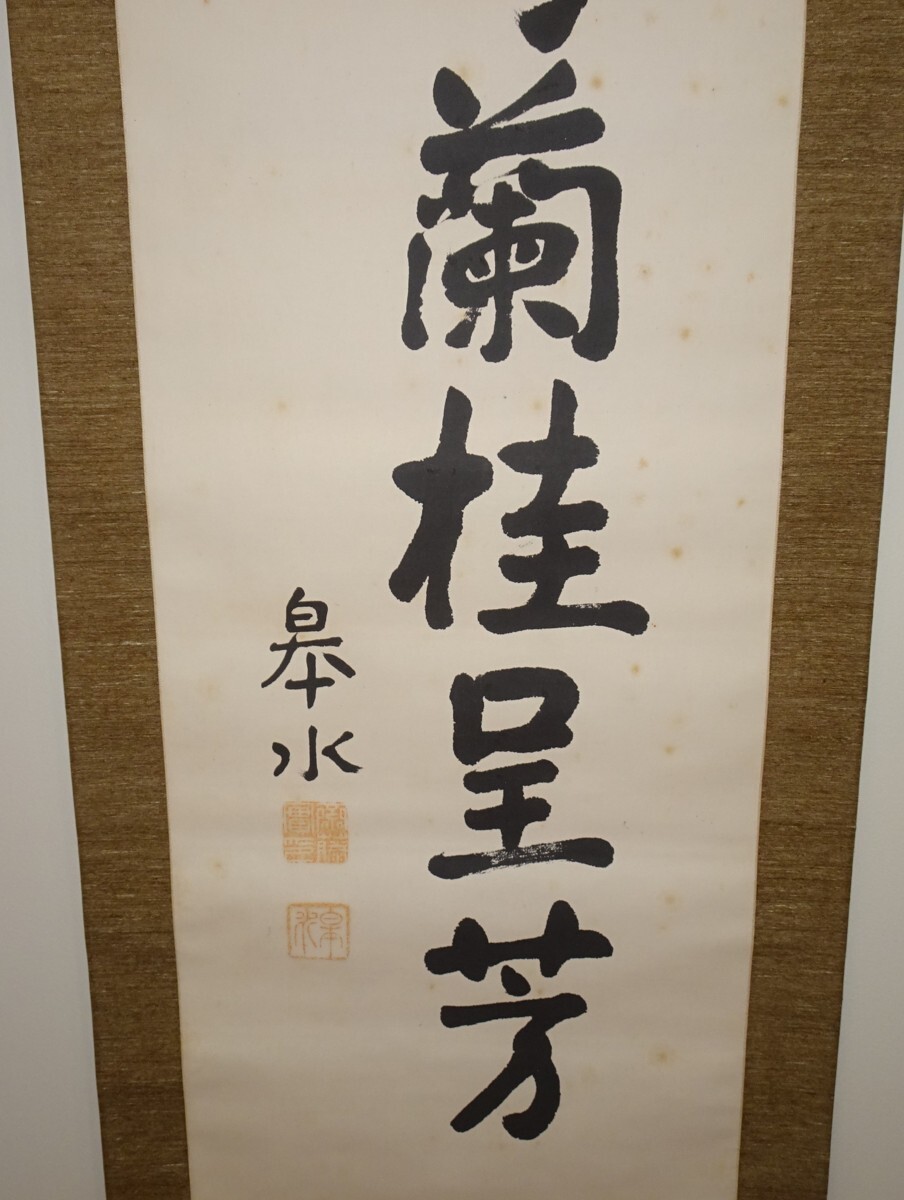 蘭桂呈芳
皐水
皐水